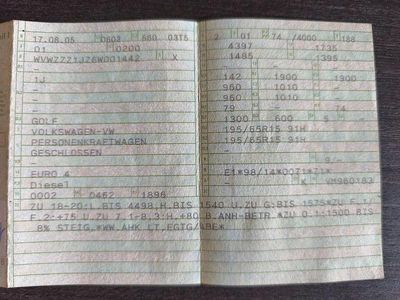 17.08.05 0603 580 03T5
01 0200
WVWZZZ1JZ6W001442 X
-
1J
-
-
-
GOLF
VOLKSWAGEN-VW
PERSONENKRAFTWAGEN
GESCHLOSSEN
-
EURO 4
Diesel
0002 0462 1896
2 01 74 /4000 188
4397 1735
1485 1395
-
142 1900 1900
960 1010 -
960 1010 -
- 79 74
1300 600 5
195/65R15 91H
195/65R15 91H
-
-
- 9 -
E1*98/14*0071*71*
- K VM960183
ZU 18-20:L.BIS 4498,H.BIS 1540 U.ZU G:BIS 1575*ZU F.1/
F.2:+75 U.ZU 7.1-8.3:H.+80 B.ANH-BETR.*ZU O.1:1500 BIS
8% STEIG.*WW.AHK LT.EGTG/ABE*